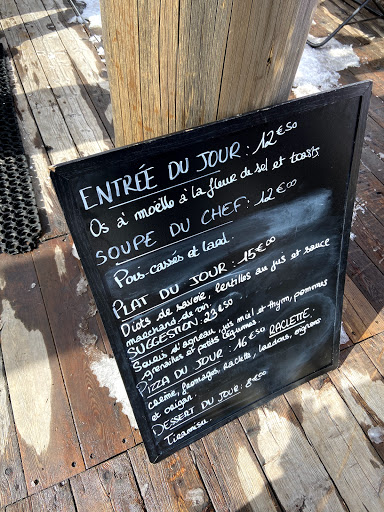 ENTRÉE DU JOUR : 12€50
Os à moëlle à la fleur de sel et toasts.
SOUPE DU CHEF : 12€00
Pois-cassés et lard.
PLAT DU JOUR : 15€00
Diots de savoie, lentilles au jus et sauce
marchand de vin.
SUGGESTION : 22€50
Souris d'agneau, jus miel et thym, pommes
grenailles et petits légumes.
PIZZA DU JOUR : 16€50 RACLETTE.
crème, fromages, raclette, lardons, oignons
et origan.
DESSERT DU JOUR : 8€00
Tiramisu.